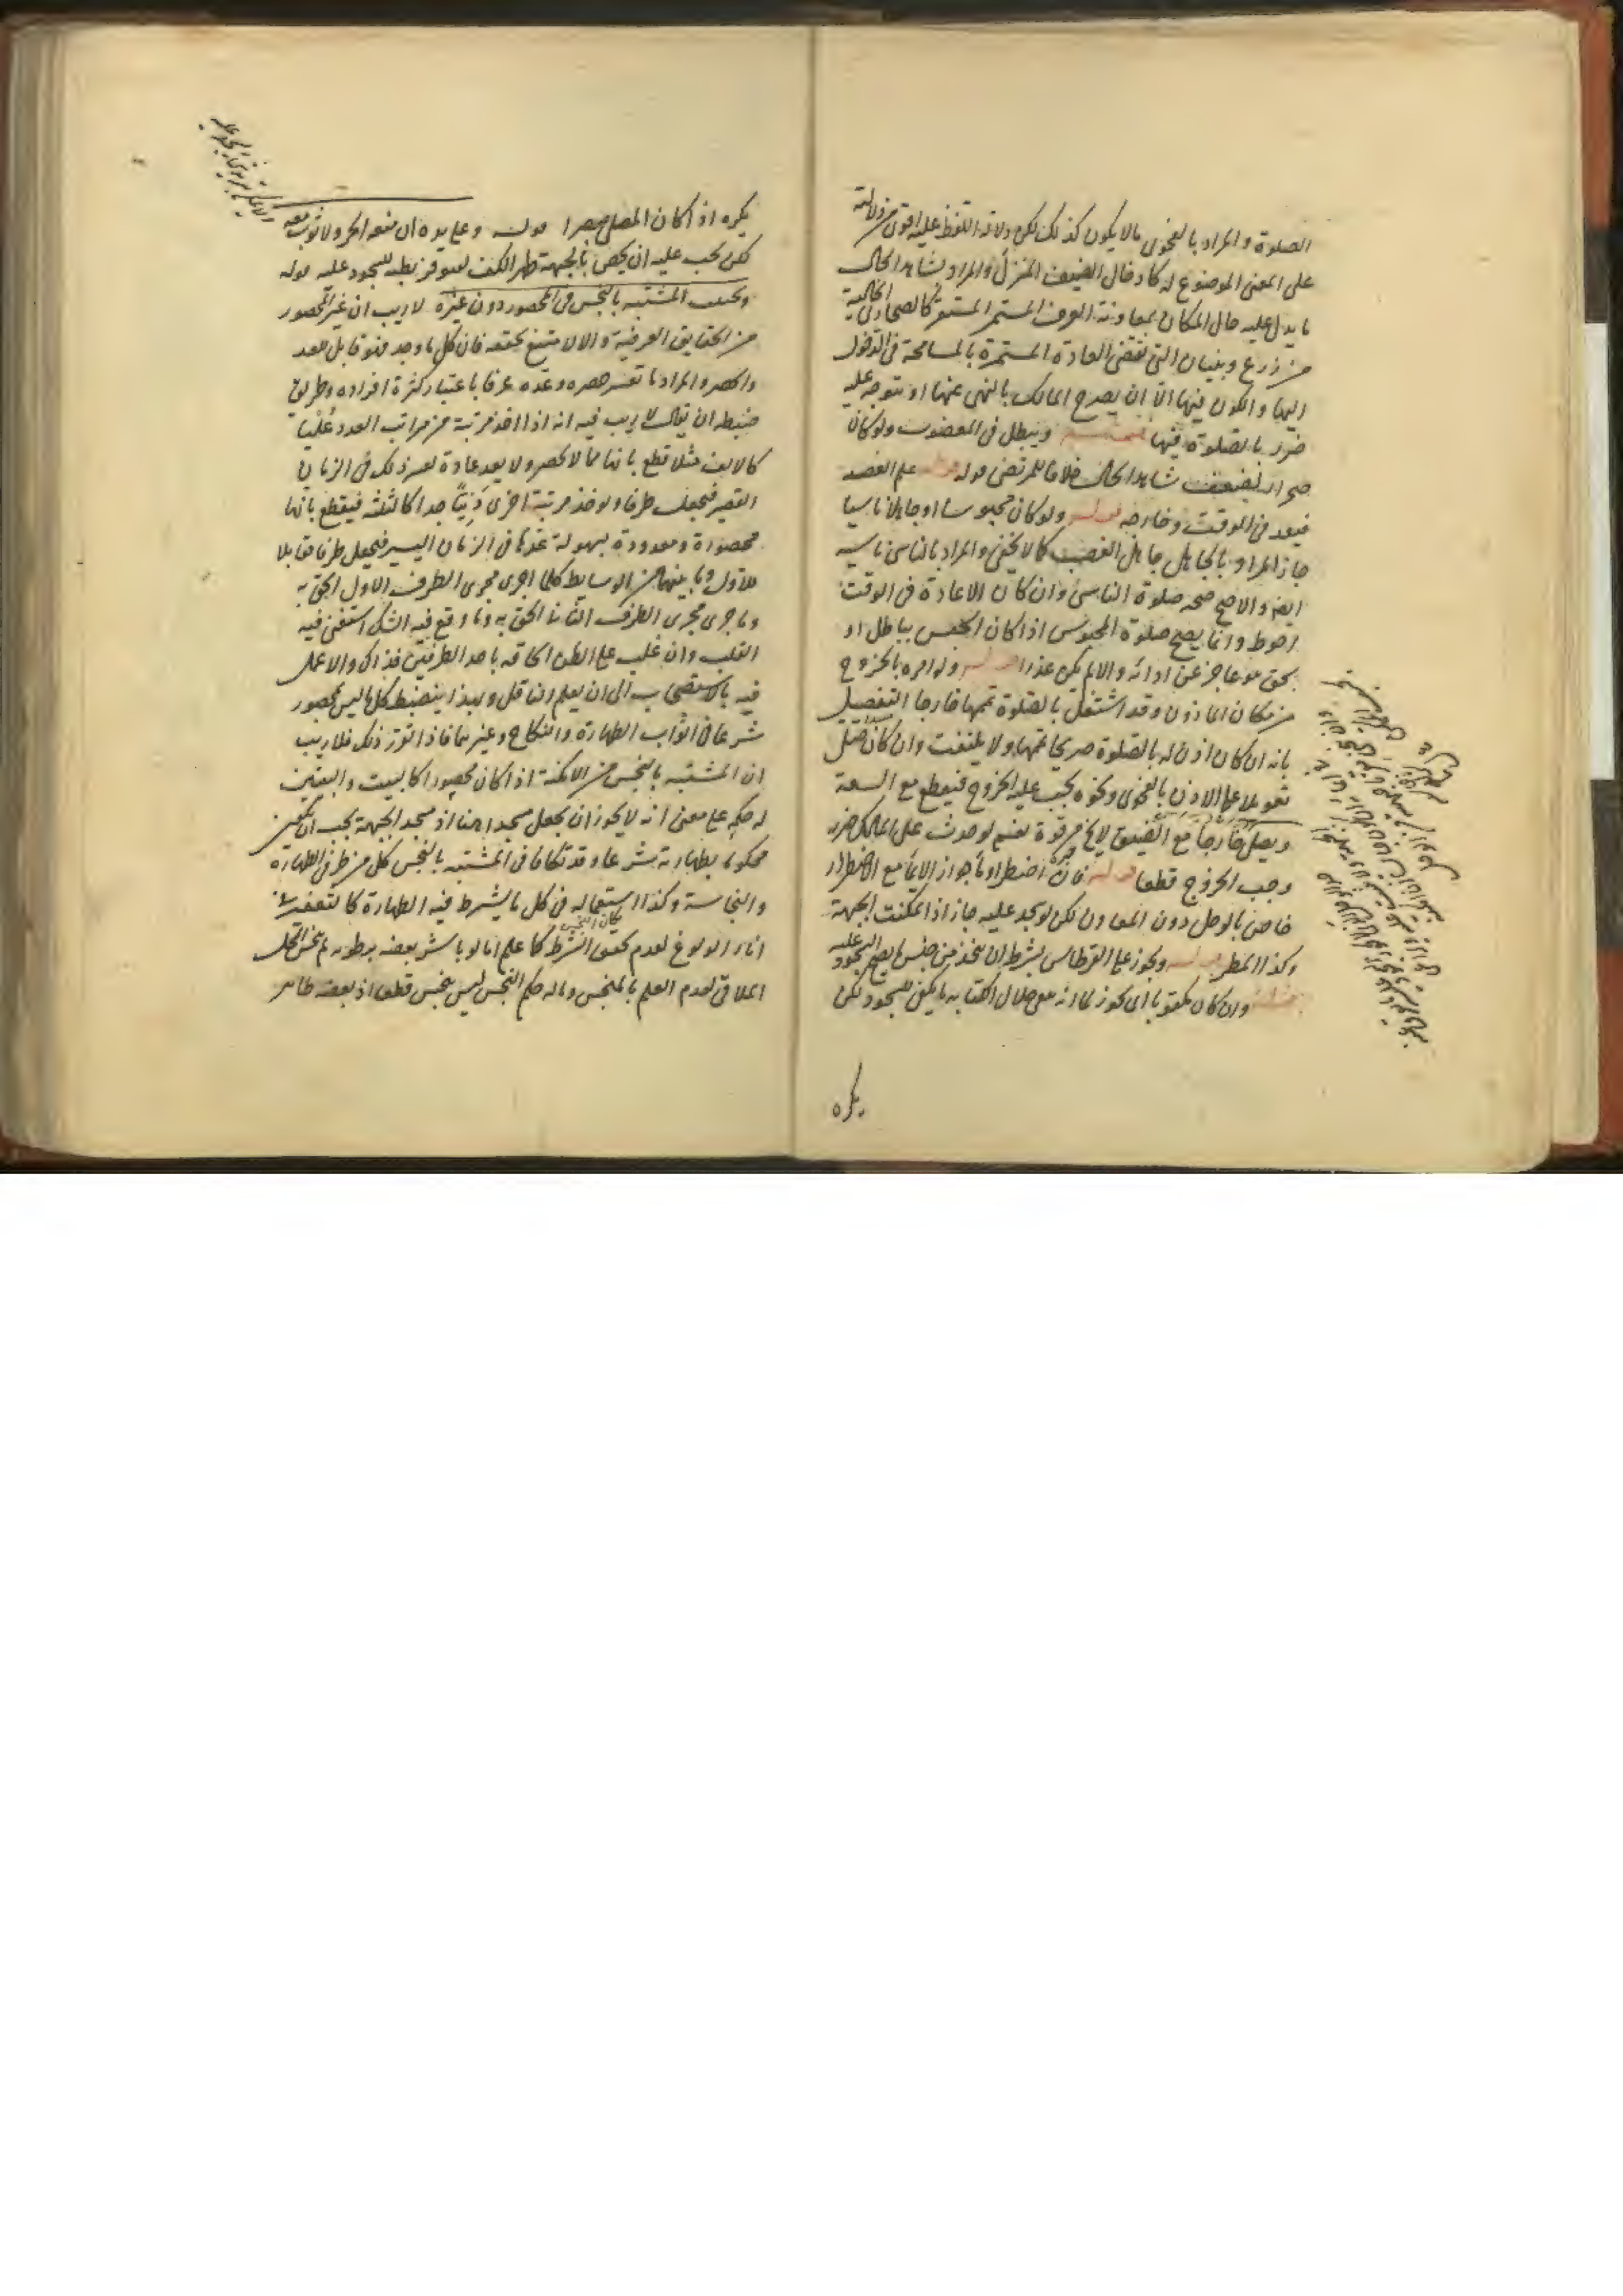 الصلوة والمراد بالفحوى ما لا يكون كذلك لكن دلالة اللفظ عليه اقوى من دلالته
على المعنى الموضوع له كادخال الضيف المنزل والمراد بشاهد الحال
ما يدل عليه حال المكان بمعاونة العرف المستمر كالصحارى الخالية
من زرع وبنيان التى تقتضى العادة المستمرة بالمسامحة فى الدخول
اليها والكون فيها الا ان يصرح المالك بالنهى عنها او يتوجه عليه
ضرر بالصلوة فيها ويبطل فى المغصوب ولو كان
صحراء لضعف شاهد الحال خلافا للمرتضى قوله علم الغصب
فيعيد فى الوقت وخارجه قوله ولو كان محبوسا او جاهلا ناسيا
جاز المراد بالجاهل جاهل الغصب كما لا يخفى والمراد بالناسى ناسيه
ايضا والاصح صحة صلوة الناسى وان كان الاعادة فى الوقت
احوط وانما يصح صلوة المحبوس اذا كان الحبس بباطل او
بحق هو عاجز عن ادائه والا لم يكن عذرا قوله ولو امره بالخروج
من مكان الماذون وقد اشتغل بالصلوة تممها خارجا التفصيل
بانه ان كان اذن له بالصلوة صريحا تممها ولا يلتفت وان كان قبل
تعويلا على الاذن بالفحوى ونحوه يجب عليه الخروج فيقطع مع السعة
ويصلى خارجا مع الضيق لا يخ من قوة نعم لو حدث على المالك ضرر
وجب الخروج قطعا قوله فان اضطر اومأ جواز الايماء مع الاضطرار
خاص بالوحل دون المعادن لكن لو سجد عليه جاز اذا تمكنت الجبهة
وكذا المطر قوله ويجوز على القرطاس بشرط ان يتخذ من جنس ما يصح السجود عليه
وان كان مكتوبا اى يجوز لما انه مع خلال الكتابة ما يكفى للسجود لكن
يكره
يكره اذا كان المصلى مبصرا قوله وعلى يده ان منعه الحر ولا ثوب معه
لكن يجب عليه ان يخص بالجبهة ظهر الكف ليتوفر بطنه للسجود عليه قوله
ويجتنب المشتبه بالنجس فى المحصور دون غيره لا ريب ان غير المحصور
من الحقايق العرفية والا لامتنع تحققه فان كل ما وجد فهو قابل للعد
والحصر والمراد ما تعسر حصره وعده عرفا باعتبار كثرة افراده وطريق
ضبطه ان يقال لا ريب فيه انه اذا اخذ مرتبة من مراتب العدد عليا
كالالف مثلا قطع بانها مما لا تحصر ولا يعد عادة لعسر ذلك فى الزمان
القصير فيجعل طرفا ويوخذ مرتبة اخرى دنيا جدا كالثلثة فيقطع بانها
محصورة ومعدودة بسهولة عدها فى الزمان اليسير فيجعل طرفا مقابلا
للاول وما بينهما من الوسايط كلما اجرى مجرى الطرف الاول الحق به
وما جرى مجرى الطرف الثانى الحق به وما وقع فيه الشك استفتى فيه
القلب وان غلب على الظن الحاقه باحد الطرفين فذاك والا عمل
فيه بالاستصحاب الى ان يعلم الناقل وبهذا ينضبط كل ما ليس بمحصور
شرعا فى ابواب الطهارة والنكاح وغيرهما فاذا تقرر ذلك فلا ريب
ان المشتبه بالنجس من الامكنة اذا كان محصورا كالبيت والبيتين
له حكمه على معنى انه لا يجوز ان يجعل مسجدا هنا اذ مسجد الجبهة يجب ان يكون
محكوما بطهارته شرعا وقد تكافا فى المشتبه بالنجس كل من طرفى الطهارة
والنجاسة وكذا استعماله فى كل ما يشترط فيه الطهارة كالتعفير فى
اناء الولوغ لعدم تحقق الشرط كما علم اما لو باشر بعضه برطوبة لم ينجس المحل
الملاقى لعدم العلم بالنجس وما له حكم النجس ليس بنجس قطعا اذ بعضه طاهر